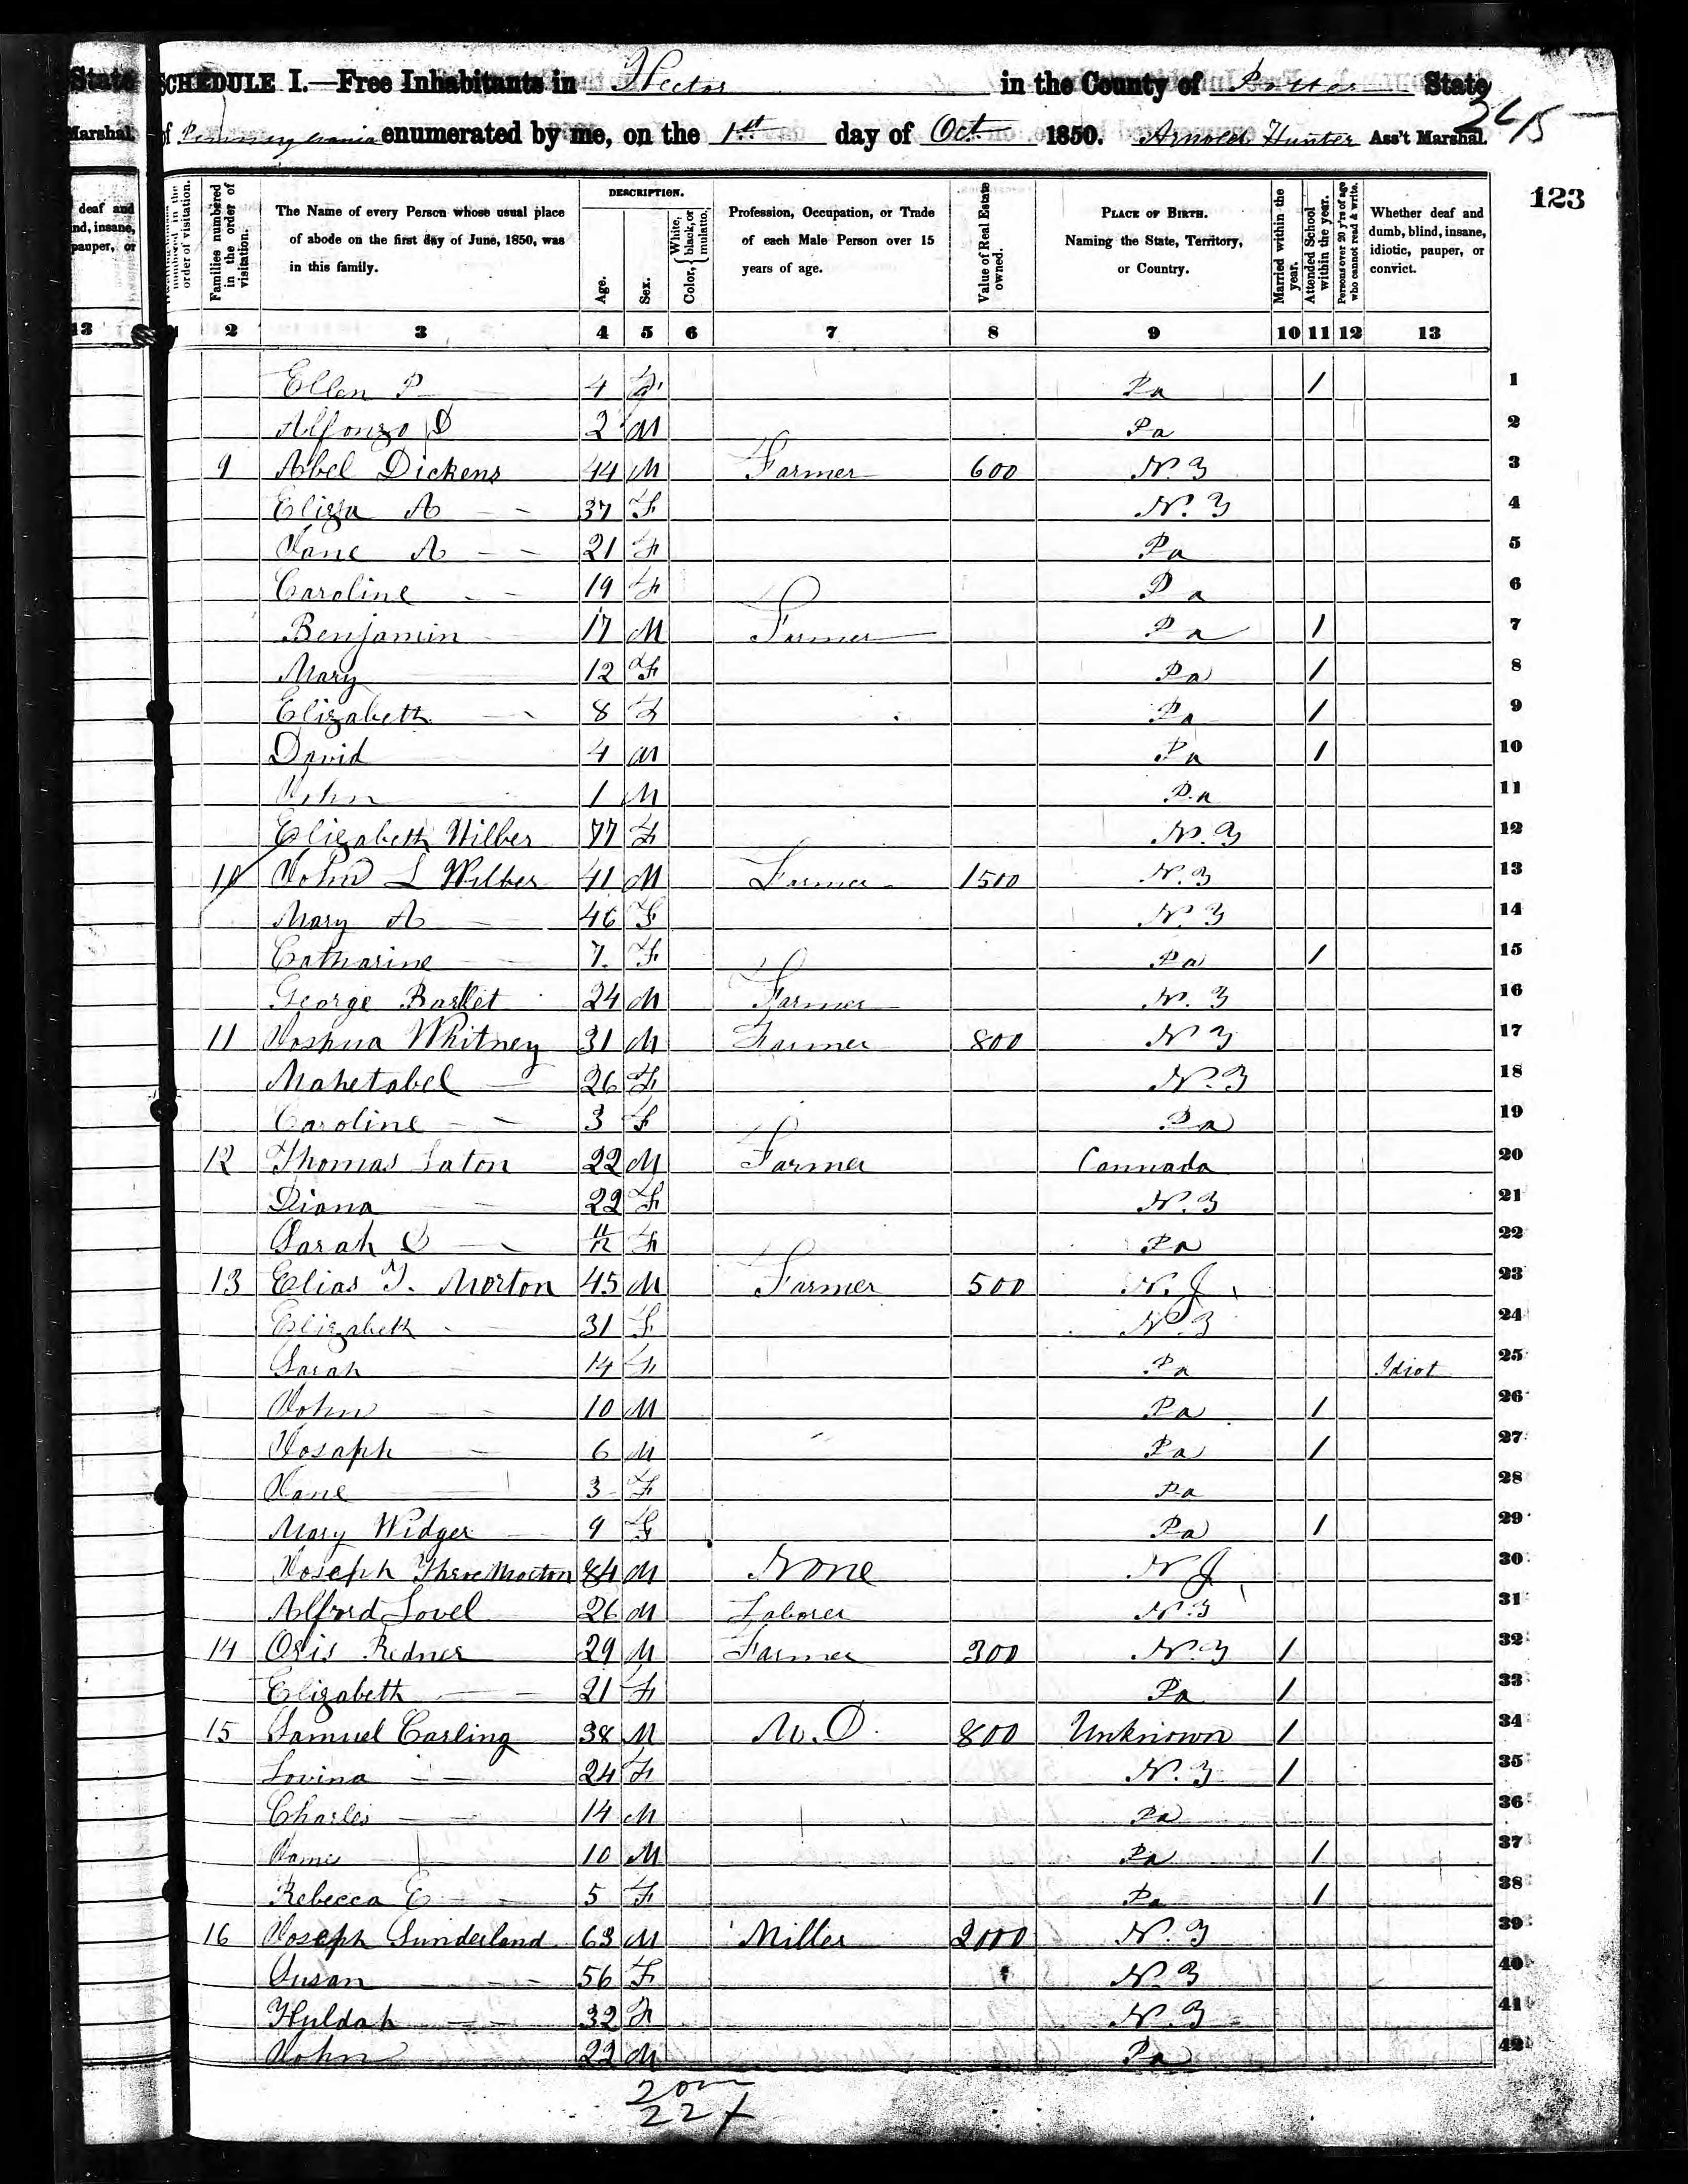 State
Marshal.
deaf and
nd, insane,
pauper, or
13
SCHEDULE I.—Free Inhabitants in Hector in the County of Potter State
of Pennsylvania enumerated by me, on the 1st day of Oct 1850. Arnold Hunter Ass't Marshal.
123
numbered in the order of visitation.
Families numbered in the order of visitation.
The Name of every Person whose usual place of abode on the first day of June, 1850, was in this family.
DESCRIPTION.
Age.
Sex.
Color, White, black, or mulatto.
Profession, Occupation, or Trade of each Male Person over 15 years of age.
Value of Real Estate owned.
PLACE OF BIRTH. Naming the State, Territory, or Country.
Married within the year.
Attended School within the year.
Persons over 20 y'rs of age who cannot read & write.
Whether deaf and dumb, blind, insane, idiotic, pauper, or convict.
1 2 3 4 5 6 7 8 9 10 11 12 13
Ellen P 4 F Pa 1 1
Alfonzo D 2 M Pa 2
9 Abel Dickens 44 M Farmer 600 N.Y 3
Eliza A 37 F N.Y 4
Jane A 21 F Pa 5
Caroline 19 F Pa 6
Benjamin 17 M Farmer Pa 1 7
Mary 12 F Pa 1 8
Elizabeth 8 F Pa 1 9
David 4 M Pa 1 10
John 1 M Pa 11
Elizabeth Wilber 77 F N.Y 12
10 John L Wilber 41 M Farmer 1500 N.Y 13
Mary A 46 F N.Y 14
Catharine 7 F Pa 1 15
George Bartlet 24 M Farmer N.Y 16
11 Joshua Whitney 31 M Farmer 800 N.Y 17
Mahetabel 26 F N.Y 18
Caroline 3 F Pa 19
12 Thomas Laton 22 M Farmer Cannada 20
Diana 22 F N.Y 21
Sarah 11/12 F Pa 22
13 Elias T. Morton 45 M Farmer 500 N.J 23
Elizabeth 31 F N.Y 24
Sarah 14 F Pa Idiot 25
John 10 M Pa 1 26
Josaph 6 M Pa 1 27
Jane 3 F Pa 28
Mary Widger 9 F Pa 1 29
Joseph Morton 84 M None N J 30
Alford Lovel 26 M Laborer N.Y 31
14 Osis Redner 29 M Farmer 300 N.Y 1 32
Elizabeth 21 F Pa 1 33
15 Samuel Carling 38 M M.D. 800 Unknown 1 34
Lovina 24 F N.Y 1 35
Charles 14 M Pa 36
James 10 M Pa 1 37
Rebecca E 5 F Pa 1 38
16 Joseph Sunderland 63 M Miller 2000 N.Y 39
Susan 56 F N.Y 40
Huldah 32 F N.Y 41
John 22 M Pa 42
20m
22 f